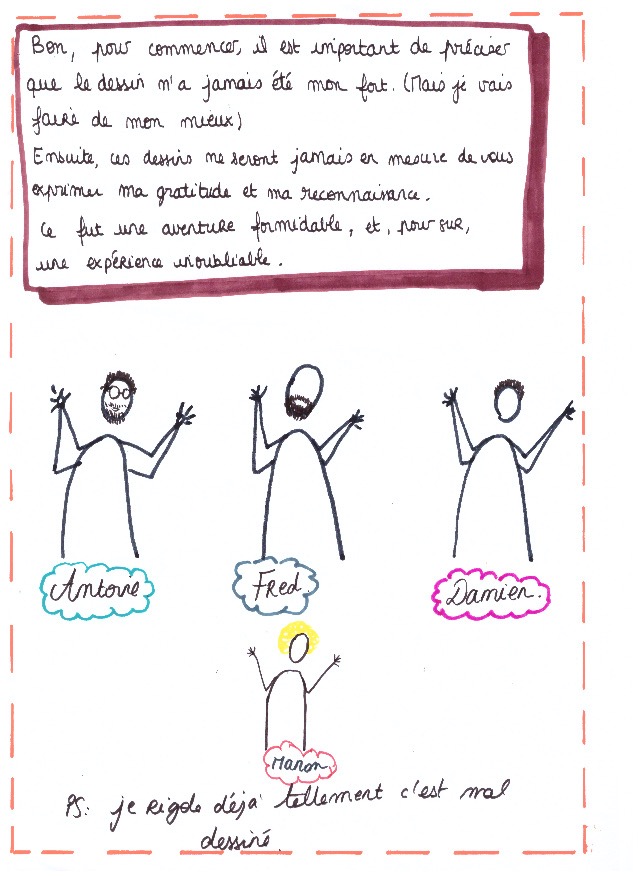 Bon, pour commencer, il est important de préciser
que le dessin n'a jamais été mon fort. (Mais je vais
faire de mon mieux)
Ensuite, ces dessins ne seront jamais en mesure de vous
exprimer ma gratitude et ma reconnaissance.
Ce fut une aventure formidable, et, pour sur,
une expérience inoubliable.
Antoine
Fred
Damien.
Manon
PS: je rigole déjà tellement c'est mal
dessiné.